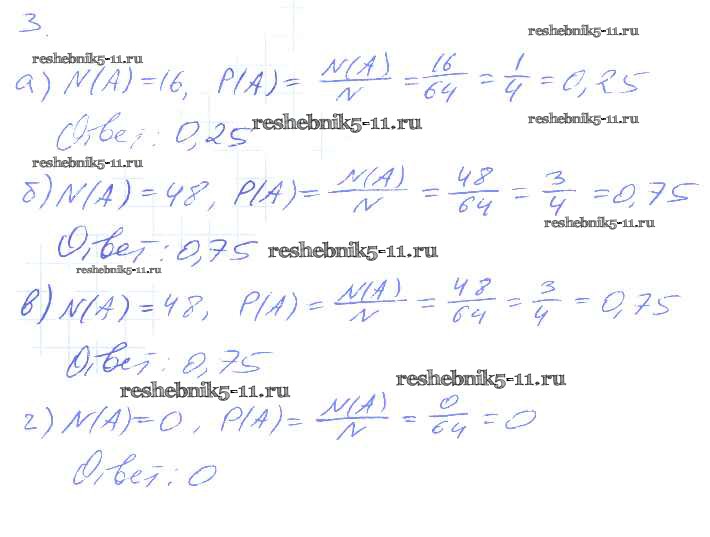 3.
reshebnik5-11.ru
reshebnik5-11.ru
а) N(A)=16, P(A)= N(A)/N = 16/64 = 1/4 = 0,25
Ответ: 0,25 reshebnik5-11.ru reshebnik5-11.ru
reshebnik5-11.ru
б) N(A)=48, P(A)= N(A)/N = 48/64 = 3/4 = 0,75
reshebnik5-11.ru
Ответ: 0,75 reshebnik5-11.ru
reshebnik5-11.ru
в) N(A)=48, P(A)= N(A)/N = 48/64 = 3/4 = 0,75
Ответ: 0,75
reshebnik5-11.ru reshebnik5-11.ru
г) N(A)=0, P(A)= N(A)/N = 0/64 = 0
Ответ: 0